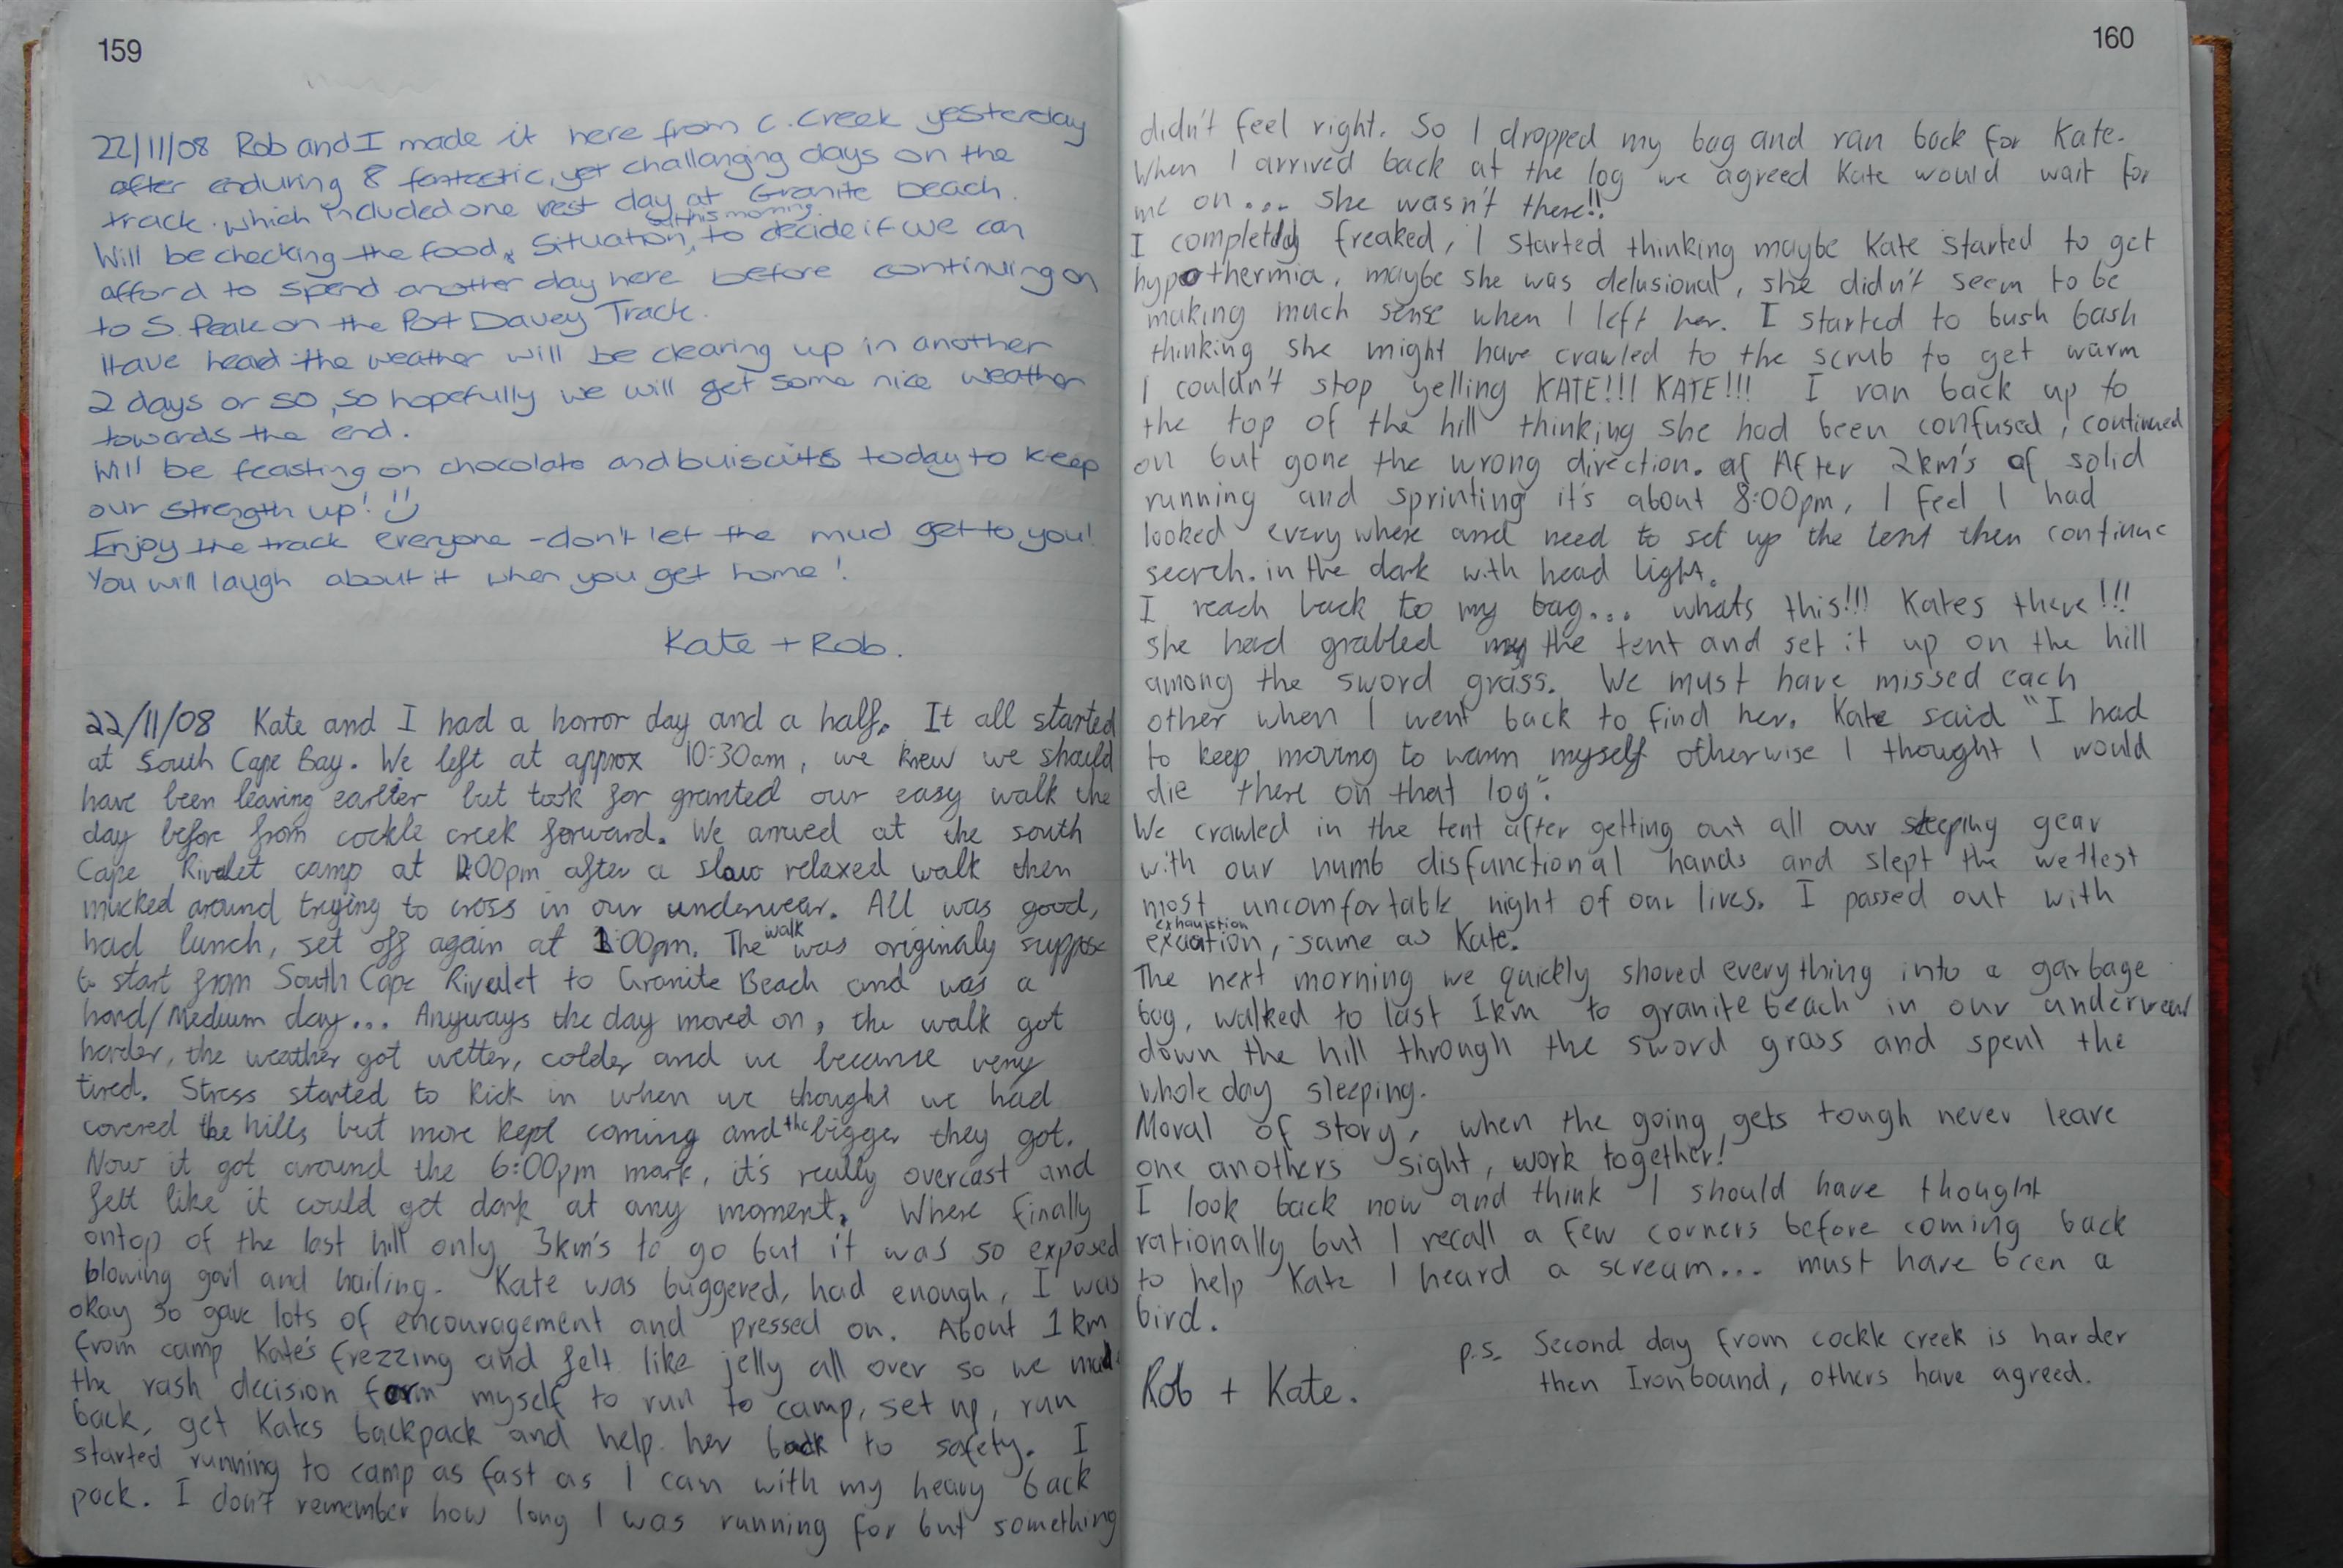 159
22/11/08 Rob and I made it here from C. Creek yesterday
after enduring 8 fantastic, yet challanging days on the
track. which included one rest day at Granite beach.
Will be checking the food situation, this morning to decide if we can
afford to spend another day here before continuing on
to S. Peak on the Port Davey Track.
Have heard the weather will be clearing up in another
2 days or so, so hopefully we will get some nice weather
towards the end.
Will be feasting on chocolate and buiscuits today to keep
our strength up! :)
Enjoy the track everyone - don't let the mud get to you!
You will laugh about it when you get home!
Kate + Rob.
22/11/08 Kate and I had a horror day and a half. It all started
at South Cape Bay. We left at approx 10:30am, we knew we should
have been leaving earlier but took for granted our easy walk the
day before from cockle creek forward. We arrived at the south
Cape Rivulet camp at 12:00pm after a slow relaxed walk then
mucked around trying to cross in our underwear. All was good,
had lunch, set off again at 1:00pm. The walk was originaly suppose
to start from South Cape Rivulet to Granite Beach and was a
hard/Medium day... Anyways the day moved on, the walk got
harder, the weather got wetter, colder and we became very
tired. Stress started to kick in when we thought we had
covered the hills but more kept coming and the bigger they got.
Now it got around the 6:00pm mark, it's really overcast and
felt like it could get dark at any moment. Where finally
ontop of the last hill only 3km's to go but it was so exposed
blowing gail and hailing. Kate was buggered, had enough, I was
okay so gave lots of encouragement and pressed on. About 1km
from camp Kate's frezzing and felt like jelly all over so we made
the rash decision form myself to run to camp, set up, run
back, get Kates backpack and help her back to safety. I
started running to camp as fast as I can with my heavy back
pack. I don't remember how long I was running for but something
160
didn't feel right. So I dropped my bag and ran back for Kate.
When I arrived back at the log we agreed Kate would wait for
me on... she wasn't there!!
I completely freaked, I started thinking maybe Kate started to get
hypothermia, maybe she was delusional, she didn't seem to be
making much sense when I left her. I started to bush bash
thinking she might have crawled to the scrub to get warm
I couldn't stop yelling KATE!!! KATE!!! I ran back up to
the top of the hill thinking she had been confused, continued
on but gone the wrong direction. After 2km's of solid
running and sprinting it's about 8:00pm, I feel I had
looked every where and need to set up the tent then continue
search. in the dark with head light.
I reach back to my bag... whats this!!! Kates there!!!
she had grabbed the tent and set it up on the hill
among the sword grass. We must have missed each
other when I went back to find her. Kate said "I had
to keep moving to warm myself otherwise I thought I would
die there on that log".
We crawled in the tent after getting out all our sleeping gear
with our numb disfunctional hands and slept the wettest
most uncomfortable night of our lives. I passed out with
exhaustion, same as Kate.
The next morning we quickly shoved everything into a garbage
bag, walked to last 1km to granite beach in our underwear
down the hill through the sword grass and spent the
whole day sleeping.
Moral of story, when the going gets tough never leave
one anothers sight, work together!
I look back now and think I should have thought
rationally but I recall a few corners before coming back
to help Kate I heard a scream... must have been a
bird.
Rob + Kate.
p.s. Second day from cockle creek is harder
then Ironbound, others have agreed.